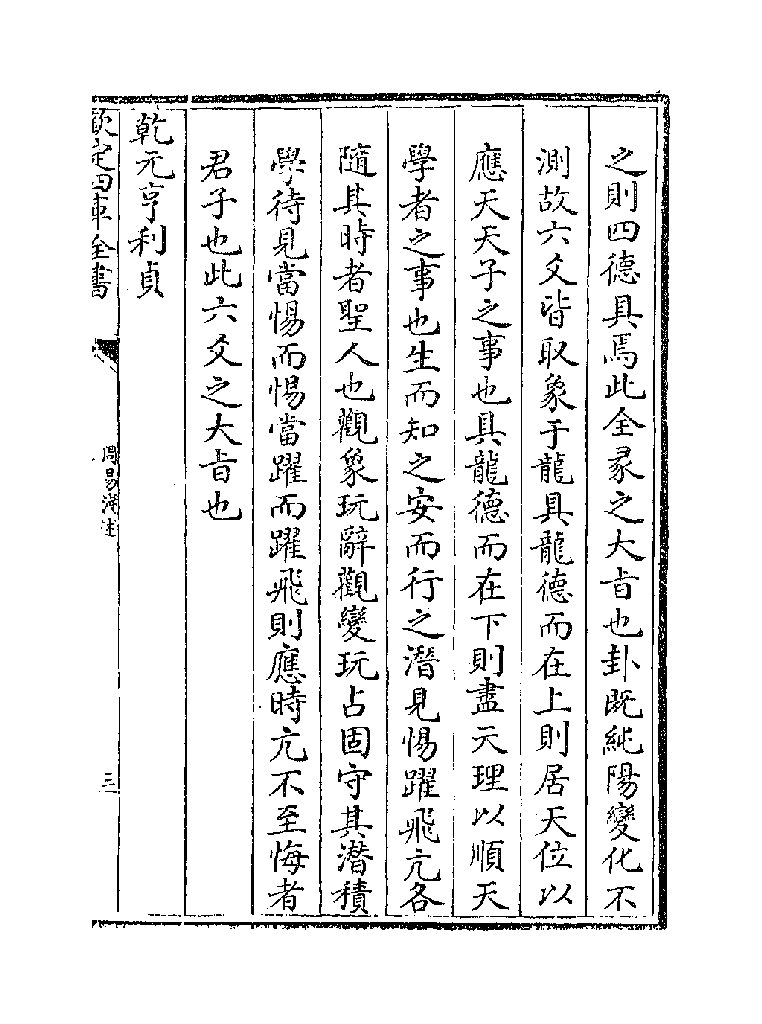 之則四德具焉此全彖之大旨也卦既純陽變化不
測故六爻皆取象于龍具龍德而在上則居天位以
應天天子之事也具龍德而在下則盡天理以順天
學者之事也生而知之安而行之潛見惕躍飛亢各
隨其時者聖人也觀象玩辭觀變玩占固守其潛積
學待見當惕而惕當躍而躍飛則應時亢不至悔者
君子也此六爻之大旨也
乾元亨利貞
欽定四庫全書
周易淺註
三